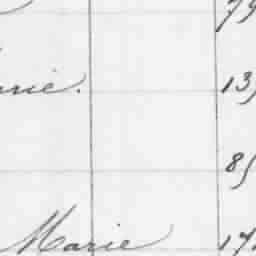 79
rie. 13
85
Marie 17